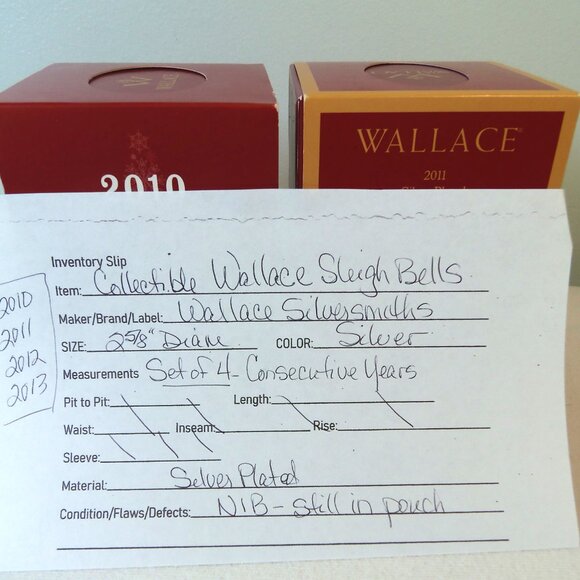 WALLACE
2010
WALLACE
2011
Inventory Slip
Item: Collectible Wallace Sleigh Bells
Maker/Brand/Label: Wallace Silversmiths
SIZE: 2 5/8" Diam COLOR: Silver
Measurements Set of 4 - Consecutive Years
Pit to Pit: Length:
Waist: Inseam: Rise:
Sleeve:
Material: Silver Plated
Condition/Flaws/Defects: NIB - still in pouch
2010
2011
2012
2013